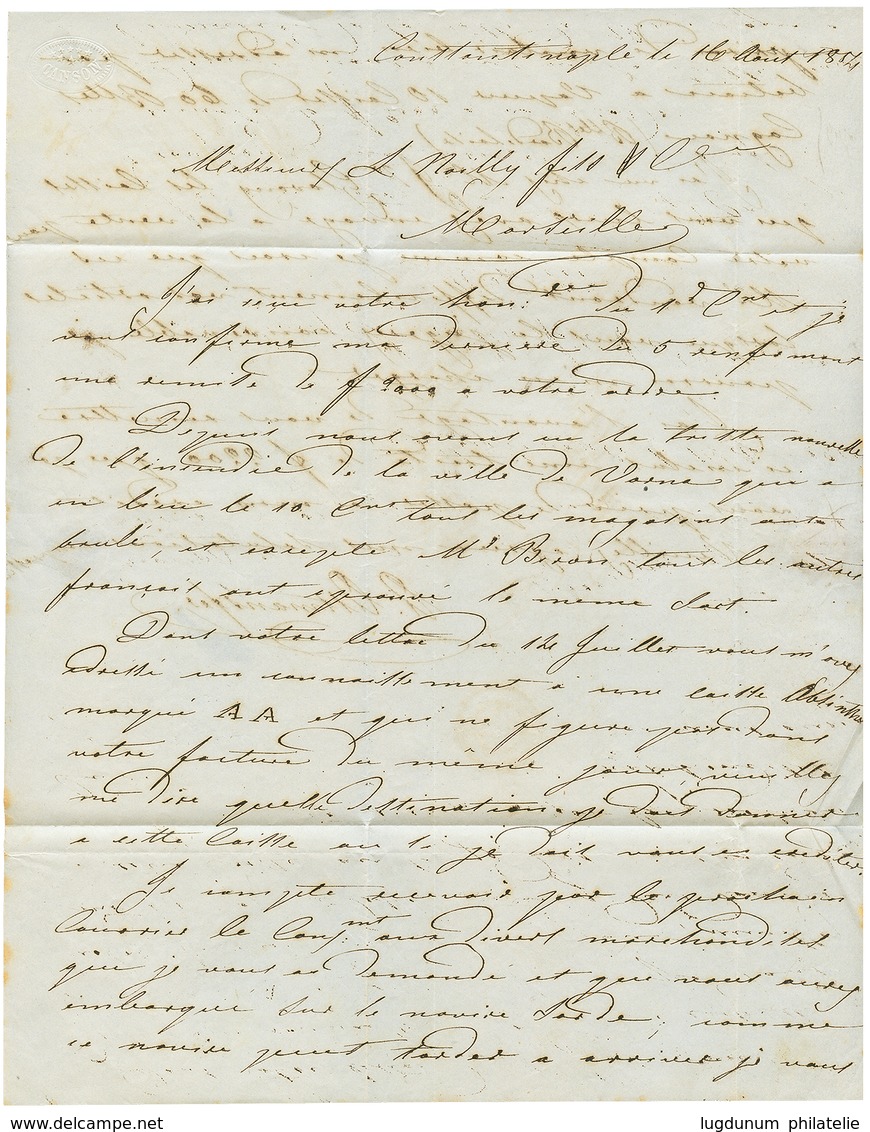 Constantinople le 16 Aout 1854
Messieurs L Noilly fils & Cie
Marseille
J'ai reçu votre hon. du 1r Cnt et je
vous confirme ma derniere du 5 renfermant
une remise de f 2000 a votre ordre.
Depuis nous avons eu la triste nouvelle
de l'incendie de la ville de Varna qui a
eu lieu le 10 Cnt tous les magasins ont
brulé, et excepté Mr Biron tous les autres
français ont eprouvé le même sort.
Dans votre lettre du 14 Juillet vous m'avez
adressé un connaissement a une caisse Absinthe
marqué AA et qui ne figure pas dans
votre facture du même jour, veuillez
me dire quelle destination je dois donner
a cette caisse ou si je dois vous en crediter.
Je compte recevoir par le prochain
Courrier le Connt aux divers marchandises
que je vous ai demandé et que vous avez
embarqué sur le navire Sarde, comme
ce navire peut tarder a arriver je vous
lugdunum philatelie